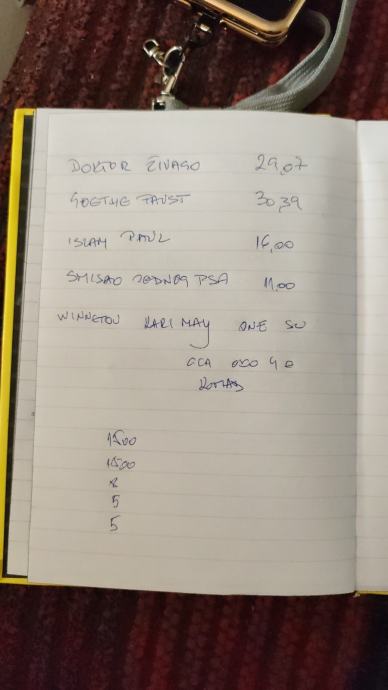 DOKTOR ŽIVAGO 29,07
GOETHE FAUST 30,39
ISLAM 16,00
SMISAO JEDNOG PSA 11,00
WINNETOU KARL MAY ONE SU
OKO 4 €
KOMAD
15,00
5
5